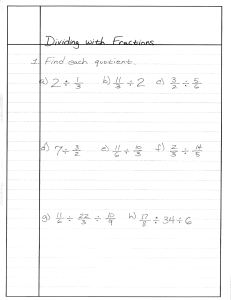 Dividing with Fractions
1. Find each quotient.
a) 2 ÷ 1/3 b) 11/3 ÷ 2 c) 3/2 ÷ 5/6
d) 7 ÷ 3/2 e) 11/6 ÷ 10/3 f) 2/3 ÷ 14/5
g) 11/2 ÷ 22/3 ÷ 10/9 h) 17/3 ÷ 34 ÷ 6